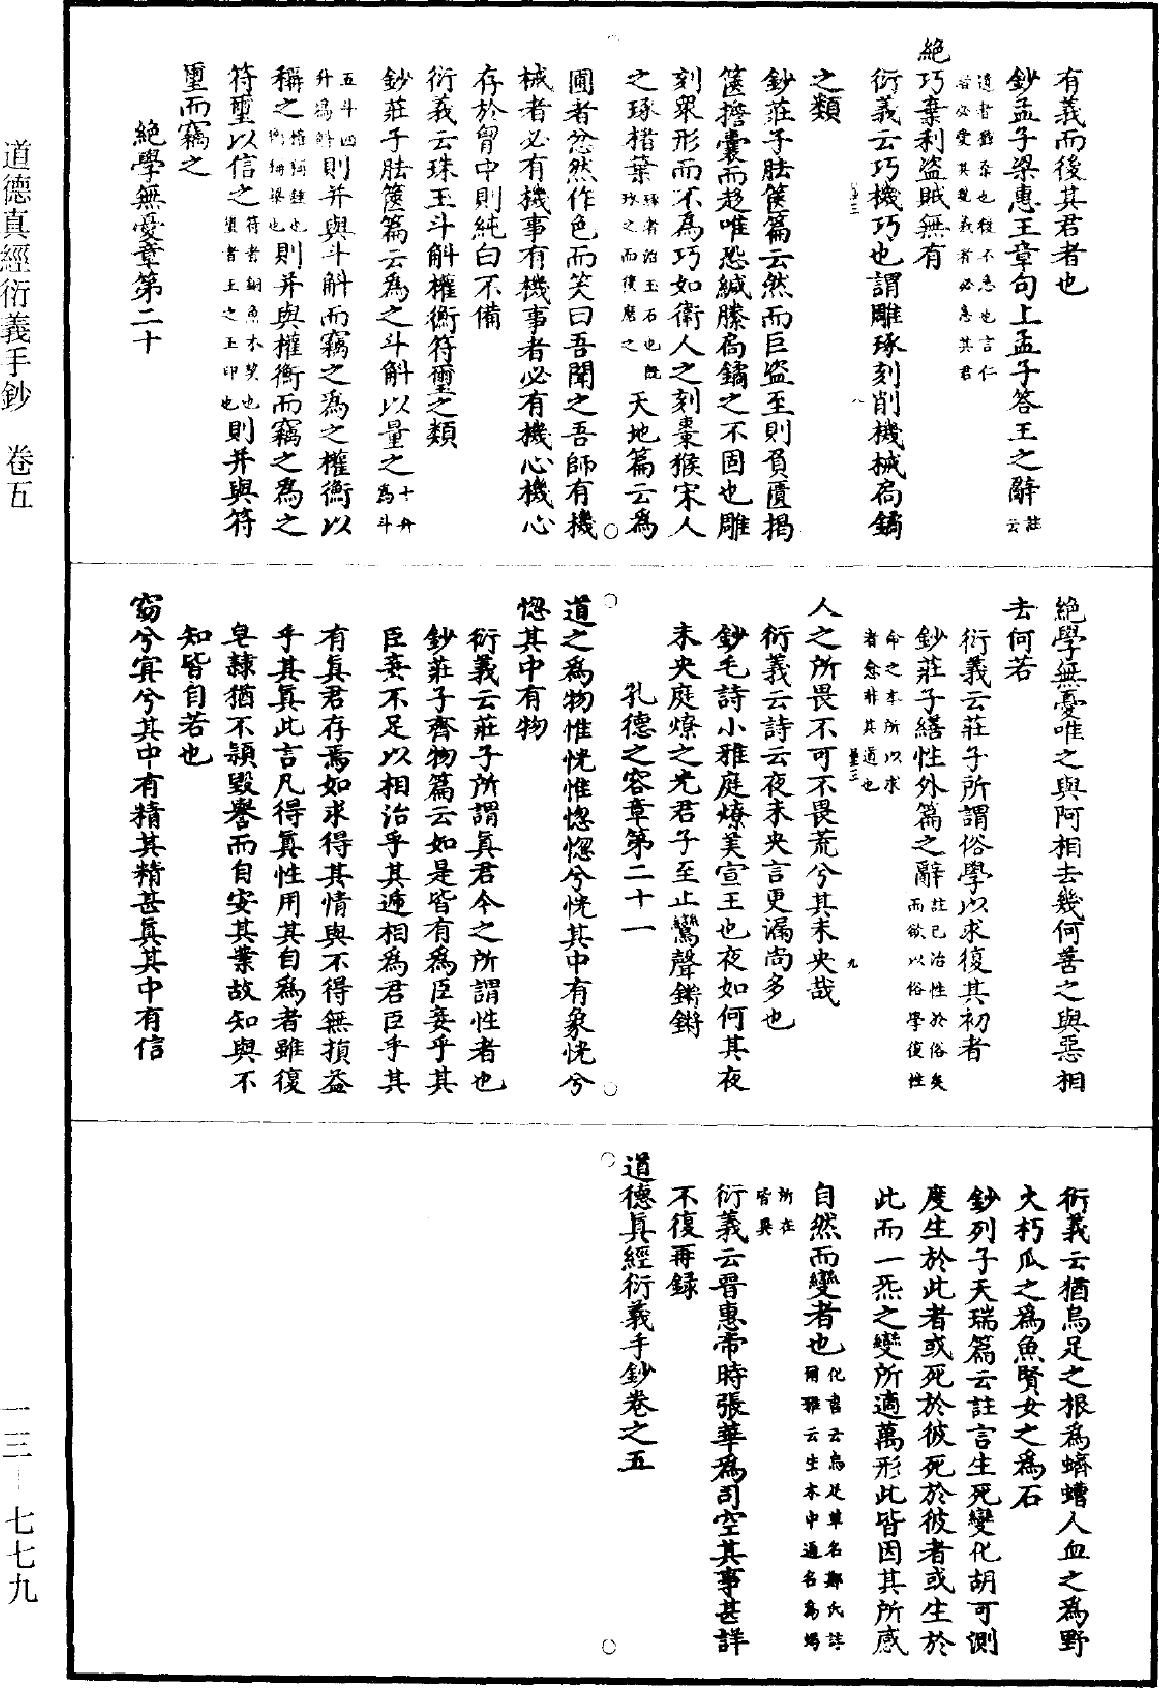 有義而後其君者也
鈔孟子梁惠王章句上孟子答王之辭註云
遺者猶棄也後不急也言仁
者必愛其親義者必急其君
絕巧棄利盜賊無有
衍義云巧機巧也謂雕琢刻削機械扃鐍
之類
鈔莊子胠篋篇云然而巨盜至則負匱揭
篋擔囊而趍唯恐緘縢扃鐍之不固也雕
刻眾形而不為巧如衛人之刻棗猴宋人
之琢楮葉琢者治玉石也既琢之而復磨之天地篇云為
圃者忿然作色而笑曰吾聞之吾師有機
械者必有機事有機事者必有機心機心
存於胷中則純白不備
衍義云珠玉斗斛權衡符璽之類
鈔莊子胠篋篇云為之斗斛以量之十升為斗
五斗四升為斛則并與斗斛而竊之為之權衡以
稱之則并與權衡而竊之為之
符璽以信之則并與符
璽而竊之
絕學無憂章第二十
絕學無憂唯之與阿相去幾何善之與惡相
去何若
衍義云莊子所謂俗學以求復其初者
鈔莊子繕性外篇之辭註已治性於俗矣而欲以俗學復性
命之本所以求
者愈非其道也
人之所畏不可不畏荒兮其未央哉
衍義云詩云夜未央言更漏尚多也
鈔毛詩小雅庭燎美宣王也夜如何其夜
未央庭燎之光君子至止鸞聲鏘鏘
孔德之容章第二十一
道之為物惟恍惟惚惚兮恍其中有象恍兮
惚其中有物
衍義云莊子所謂真君今之所謂性者也
鈔莊子齊物篇云如是皆有為臣妾乎其
臣妾不足以相治乎其遞相為君臣乎其
有真君存焉如求得其情與不得無損益
乎其真此言凡得真性用其自為者雖復
皂隸猶不顧毀譽而自安其業故知與不
知皆自若也
窈兮冥兮其中有精其精甚真其中有信
衍義云猶烏足之根為蠐螬人血之為野
火朽瓜之為魚賢女之為石
鈔列子天瑞篇云註言生死變化胡可測
度生於此者或死於彼死於彼者或生於
此而一炁之變所適萬形此皆因其所感
自然而變者也化書云烏足草名鄭氏註爾雅云生水中通名為蝎
所在
皆異
衍義云晉惠帝時張華為司空其事甚詳
不復再録
道德真經衍義手鈔卷之五
道德真經衍義手鈔 卷五
一三—七七九